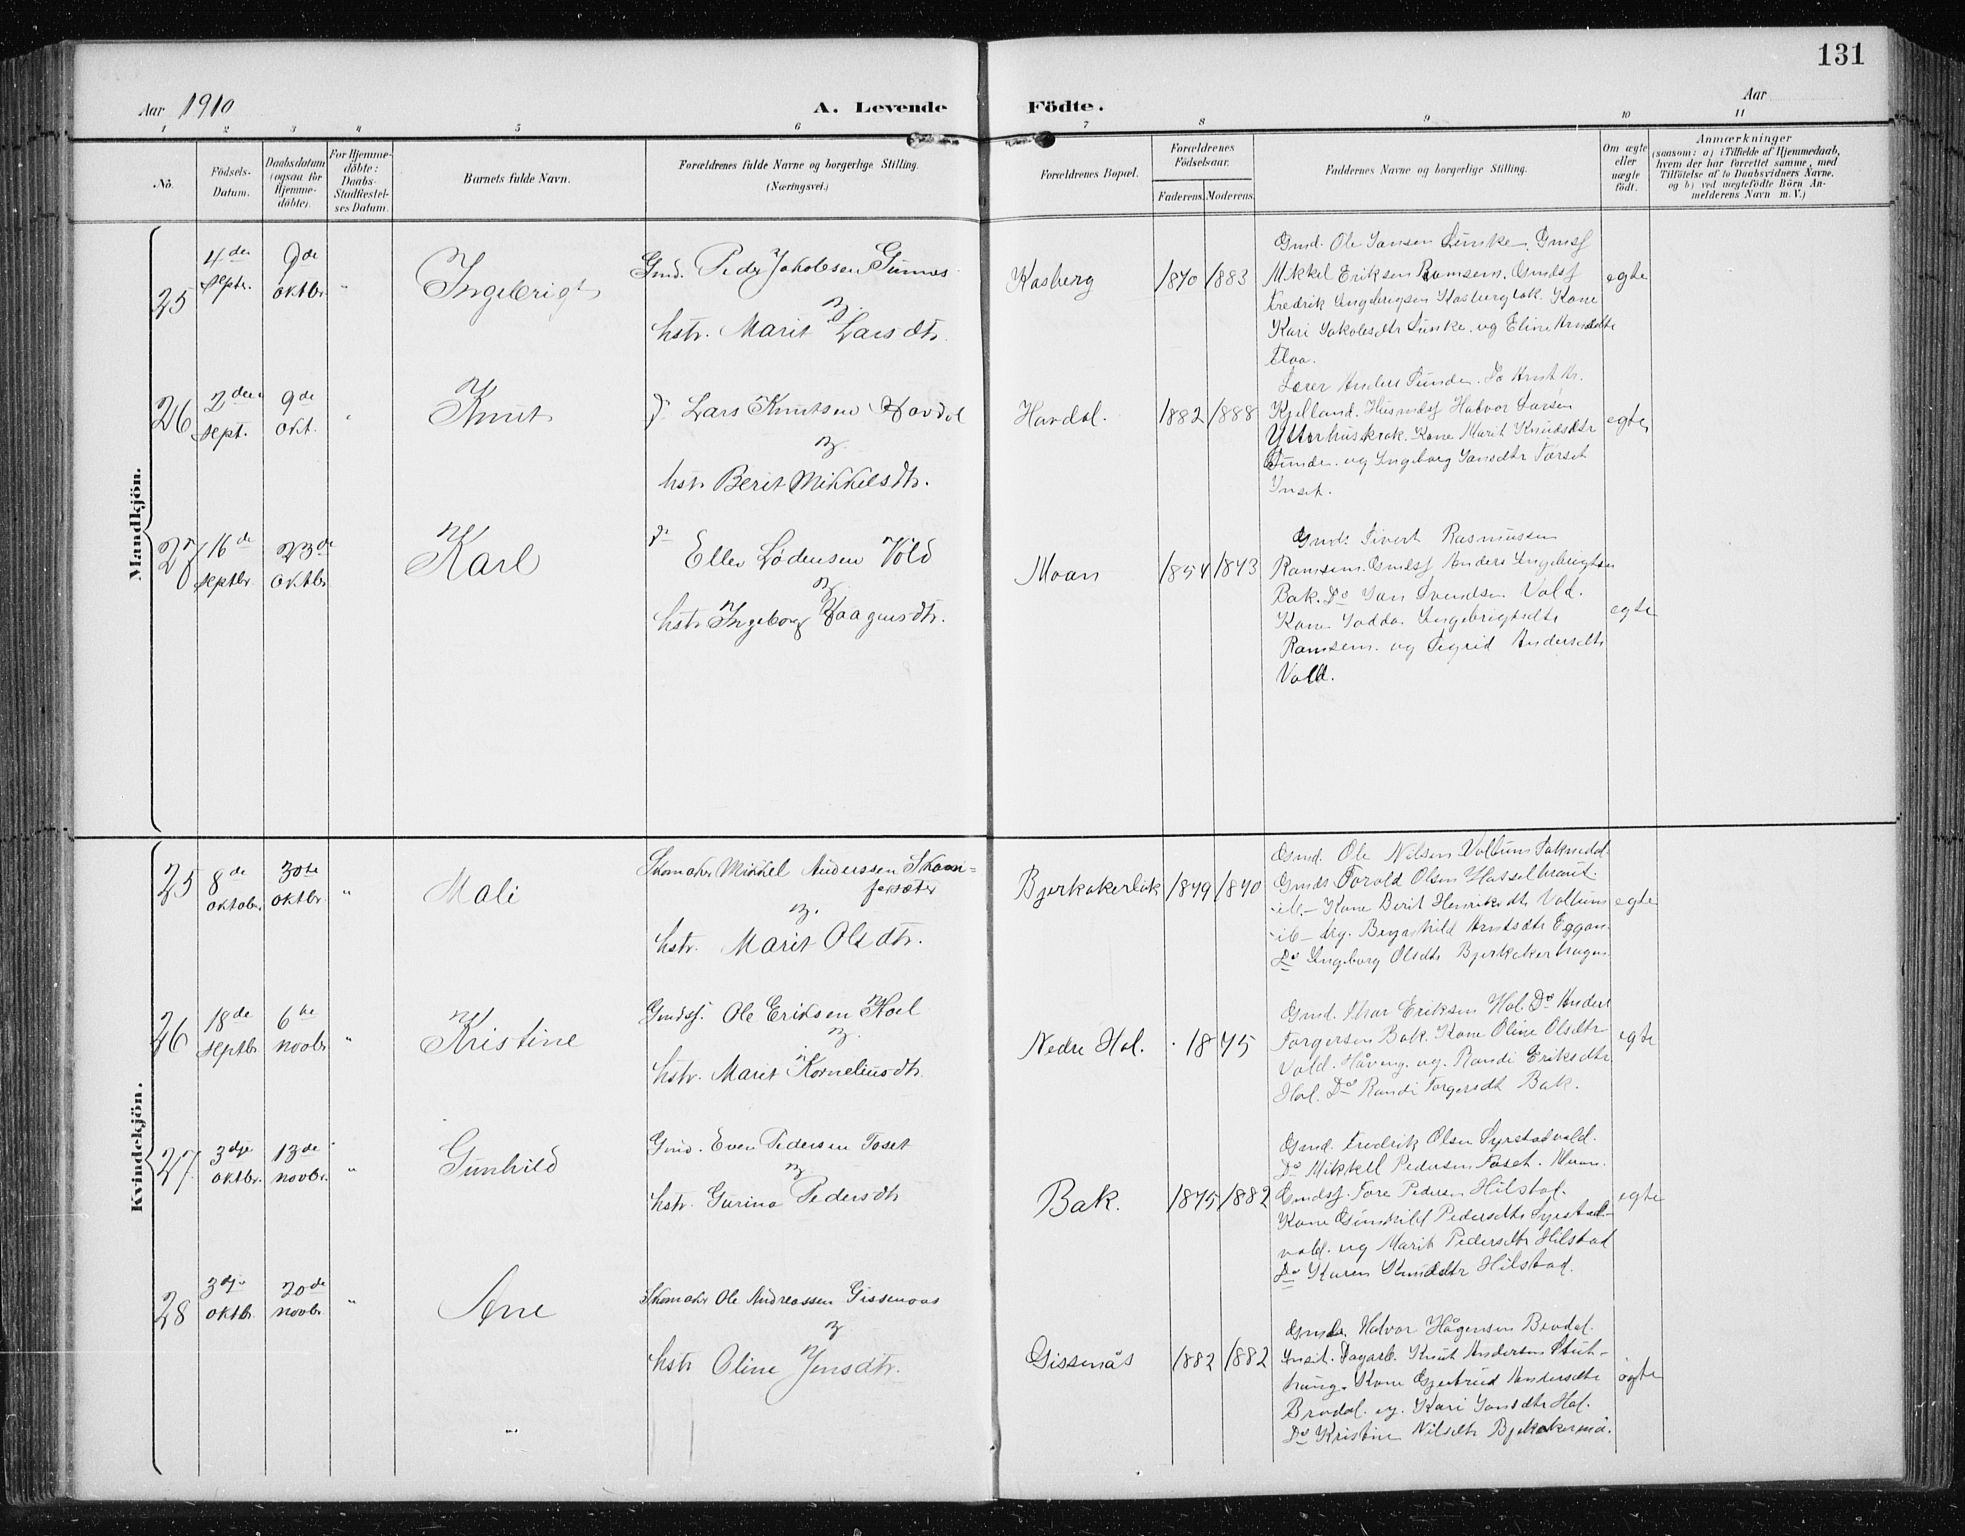 131
Aar 1910 A. Levende Födte. Aar
1 2 3 4 5 6 7 8 9 10 11
No. Födsels-Datum. Daabsdatum (ogsaa for Hjemmedöbte). For Hjemmedöbte: Daabs-Stadfæstelses Datum. Barnets fulde Navn. Forældrenes fulde Navne og borgerlige Stilling. (Næringsvei.) Forældrenes Bopæl. Forældrenes Födselsaar. Faderens. Moderens. Faddernes Navne og borgerlige Stilling. Om ægte eller uægte födt. Anmærkninger (saasom: a) i Tilfælde af Hjemmedaab, hvem der har forrettet samme, med Tilföielse af to Daabsvidners Navne, og b) ved uægtefödte Börn Anmelderens Navn m. V.)
Mandkjön.
25 4de septr. 9de oktbr. " Ingebrigt
Gmd. Peder Jakobsen
hstr. Marit Larsdtr.
Kasberg 1870 1883
Gmd. Ole Jansen Gmsf
Mikkel Eriksen Ramsem. Gmdsf
Fredrik Ingebrigtsen Kasbergbak. Kone
Kari Jakobsdtr og Eline Arntsdtr
Flaa.
egte
26 2den sept. 9de okt. " Knut
Lars Knutsen Havdal
hstr Berit Mikkelsdtr.
Havdal. 1882 1888
Lærer Anders Sunde.
Kjelland. Husmdsf Halvor Larsen
Ytterhuskrok. Kone Marit Knudsdtr
Sunde. og Ingeborg Jansdtr
Inset.
egte
27 16de septbr. 23de oktbr. Karl
Vold
hstr Ingeborg Haagensdtr.
Moan 1854 1873
Gmd. Sivert Rasmussen
Ramsem. Gmdsf Anders Ingebrigtsen
Bak. Do Jan Svendsen Vold.
Kone Ingebrigtsdtr
Ramsem. og Sigrid Andersdtr
Vold.
egte
Kvindekjön.
25 8de oktobr. 30te oktbr. " Mali
Skomaker Mikkel Anderssen
hstr. Marit Olsdtr.
Bjerkakerløk 1879 1870
Gmd. Ole Nilsen
Gmds Olsen Hasselbraut
-ib- Kone Berit Henriksdtr
-ib- Arntsdtr Eggan
Do Ingeborg Olsdtr
egte
26 18de septbr. 6te novbr. " Kristine
Gmdsf. Ole Eriksen Hoel
hstr. Marit Korneliusdtr.
Nedre Hol. 1875
Gmd. Eriksen Hol. Do Anders
Torgersen Bak. Kone Oline Olsdtr
Vold. og. Randi Eriksdtr
Hol. Do Randi Torgersdt Bak.
egte
27 3dje oktbr. 13de novbr. " Gunhild
Gmd. Even Pedersen Foset
hstr. Gurina Pedersdtr
Bak. 1875 1882
Gmd. Fredrik Olsen Syrstadvold.
Do Mikkel Pedersen Foset.
Gmdsf. Tore Pedersen Hilstad.
Kone Gunhild Pedersdtr Syrstad-
vold. og Marit Pedersdtr Hilstad
Do Karen Knudsdtr Hilstad.
egte
28 3dje oktbr. 20de novbr. " Ane
Skomaker Ole Andreassen Gissenaas
hstr Oline Jensdtr.
Gissenås 1882 1882
Gmd. Halvor Hågensen Brødal.
Inset. Dagarb. Knut Andersen
Kone Gjertrud Andersdtr
Brødal. og. Kari Jansdtr Hol.
Do Kristine Nilsdtr Bjerkakermo.
egte